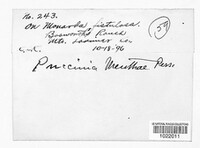 No. 243.
On Monarda fistulosa.
Bosworth's Ranch
Mts. Laramie Co.
10-18-96
59
Puccinia Menthae Pers.
1022011